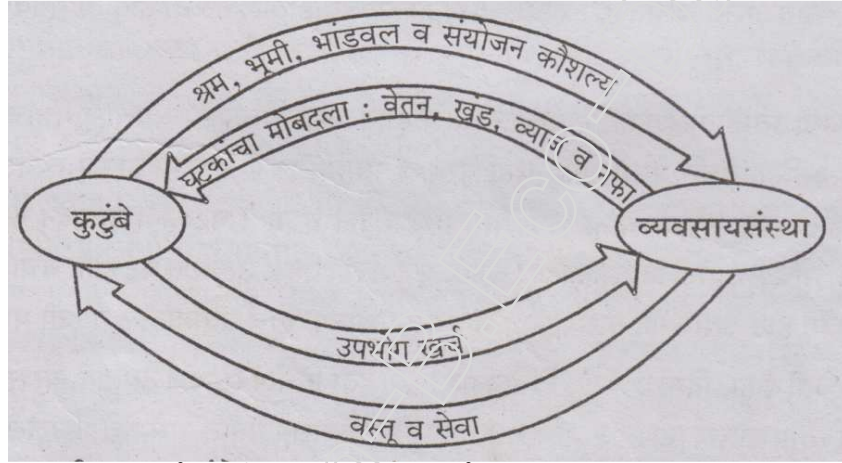 श्रम, भूमी, भांडवल व संयोजन कौशल्य
घटकांचा मोबदला : वेतन, खंड, व्याज व नफा
कुटुंबे
व्यवसायसंस्था
उपभोग खर्च
वस्तू व सेवा